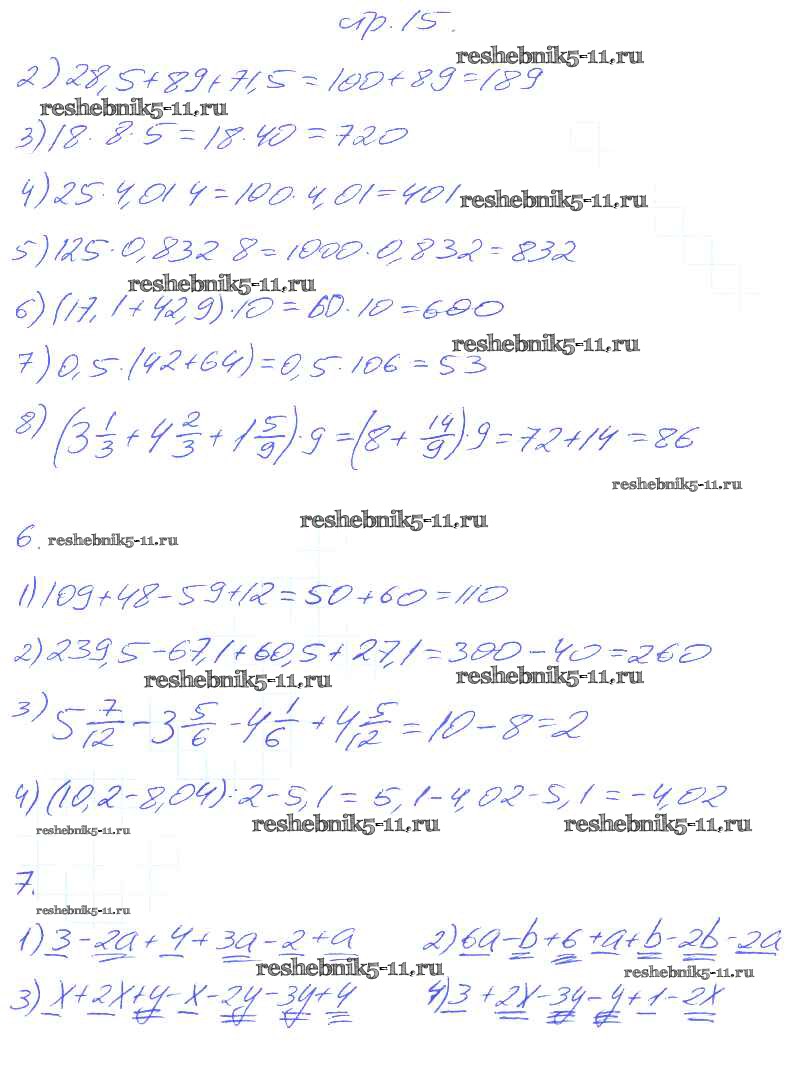 стр. 15.
reshebnik5-11.ru
2) 28,5+89+71,5=100+89=189
reshebnik5-11.ru
3) 18·8·5=18·40=720
4) 25·4,01 4=100·4,01=401
reshebnik5-11.ru
5) 125·0,832 8=1000·0,832=832
reshebnik5-11.ru
6) (17,1+42,9)·10=60·10=600
reshebnik5-11.ru
7) 0,5·(42+64)=0,5·106=53
8) (3 1/3 + 4 2/3 + 1 5/9)·9=(8+ 14/9)·9=72+14=86
reshebnik5-11.ru
reshebnik5-11.ru
6. reshebnik5-11.ru
1) 109+48-59+12=50+60=110
2) 239,5-67,1+60,5+27,1=300-40=260
reshebnik5-11.ru reshebnik5-11.ru
3) 5 7/12 - 3 5/6 - 4 1/6 + 4 5/12 = 10-8=2
4) (10,2-8,04):2-5,1=5,1-4,02-5,1=-4,02
reshebnik5-11.ru reshebnik5-11.ru reshebnik5-11.ru
7.
reshebnik5-11.ru
1) 3-2a+4+3a-2+a 2) 6a-b+6+a+b-2b-2a
reshebnik5-11.ru reshebnik5-11.ru
3) x+2x+y-x-2y-3y+4 4) 3+2x-3y-y+1-2x